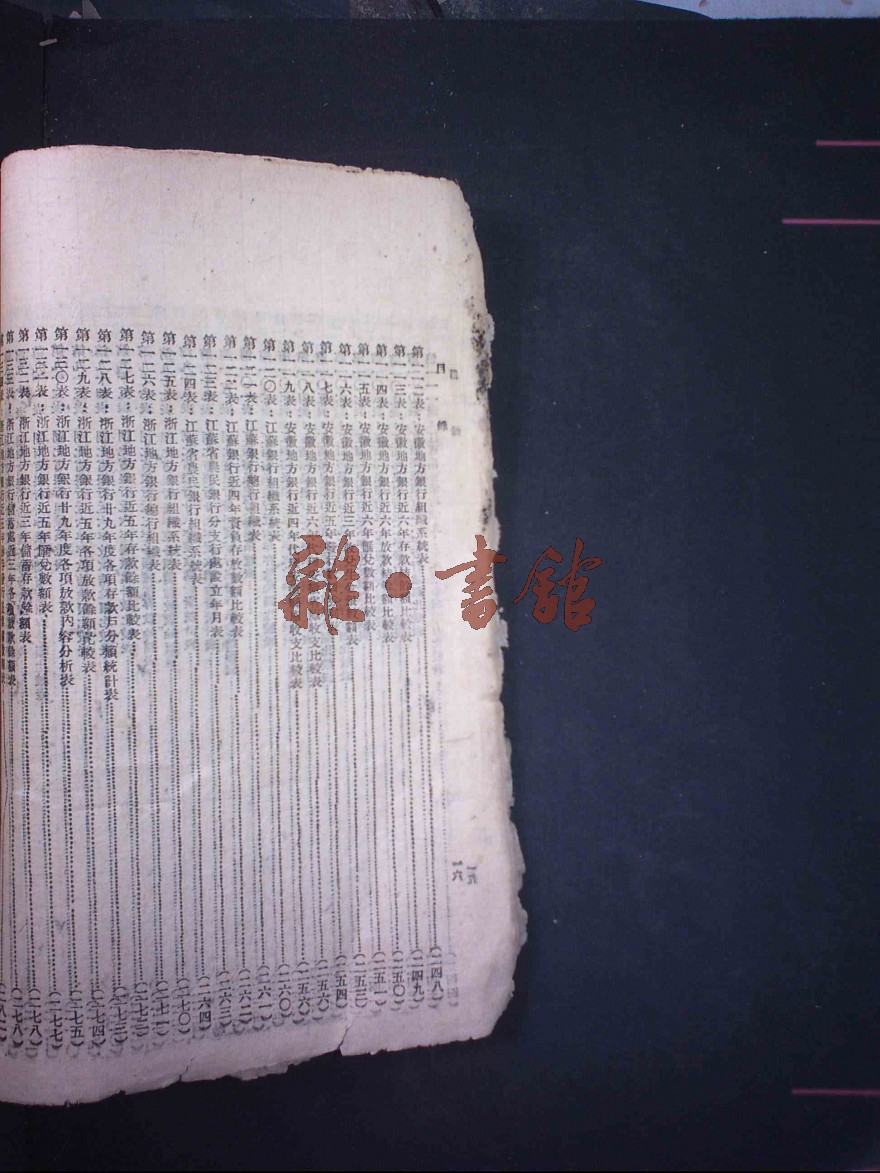 目錄
一六
第一一二表：安徽地方銀行組織系統表（一四八）
第一一三表：安徽地方銀行近六年存款 額比較表（一四九）
第一一四表：安徽地方銀行近六年放款 比較表（一五〇）
第一一五表：安徽地方銀行近六年匯兌數額比較表（一五一）
第一一六表：安徽地方銀行近三年 表（一五三）
第一一七表：安徽地方銀行近五年 表（一五四）
第一一八表：安徽地方銀行近六年 收支比較表（一五六）
第一一九表：安徽地方銀行近四年 收支比較表（一五六）
第一二〇表：江蘇銀行組織系統表（一六〇）
第一二一表：江蘇銀行總行組織表（一六一）
第一二二表：江蘇銀行近四年資負存放數額比較表（一六二）
第一二三表：江蘇省農民銀行分支行處設立年月表（一六三）
第一二四表：江蘇省農民銀行組織系統表（一六四）
第一二五表：浙江地方銀行組織系統表（一七〇）
第一二六表：浙江地方銀行總行組織表（一七一）
第一二七表：浙江地方銀行近五年存款餘額比較表（一七二）
第一二八表：浙江地方銀行廿九年度各項存款戶分類統計表（一七三）
第一二九表：浙江地方銀行近五年各項放款餘額比較表（一七四）
第一三〇表：浙江地方銀行廿九年度各項放款內容分析表（一七五）
第一三一表：浙江地方銀行近五年匯兌數額表（一七七）
第一三二表：浙江地方銀行近三年儲蓄存款餘額表（一七八）
第一三三表：浙江地方銀行儲蓄處近三年各 放款餘額表（一七八）
雜·書館